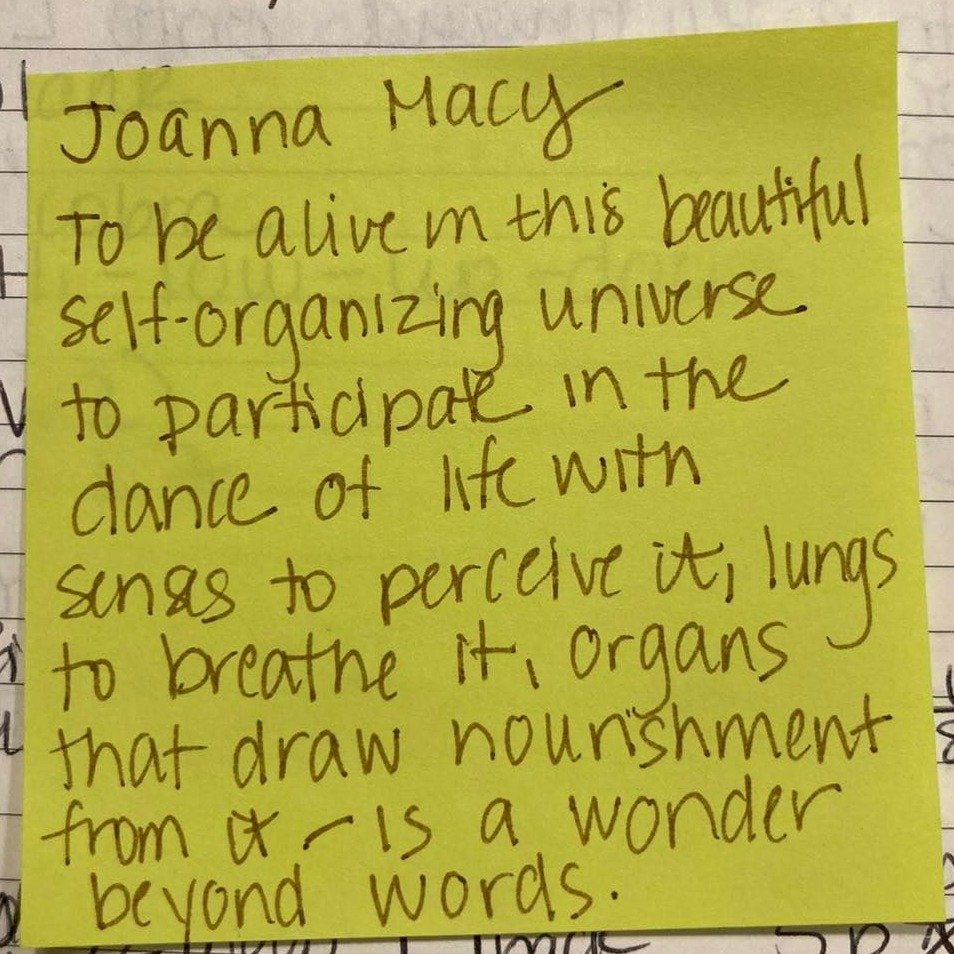 Joanna Macy
To be alive in this beautiful
self-organizing universe
to participate in the
dance of life with
senses to perceive it, lungs
to breathe it, organs
that draw nourishment
from it - is a wonder
beyond words.